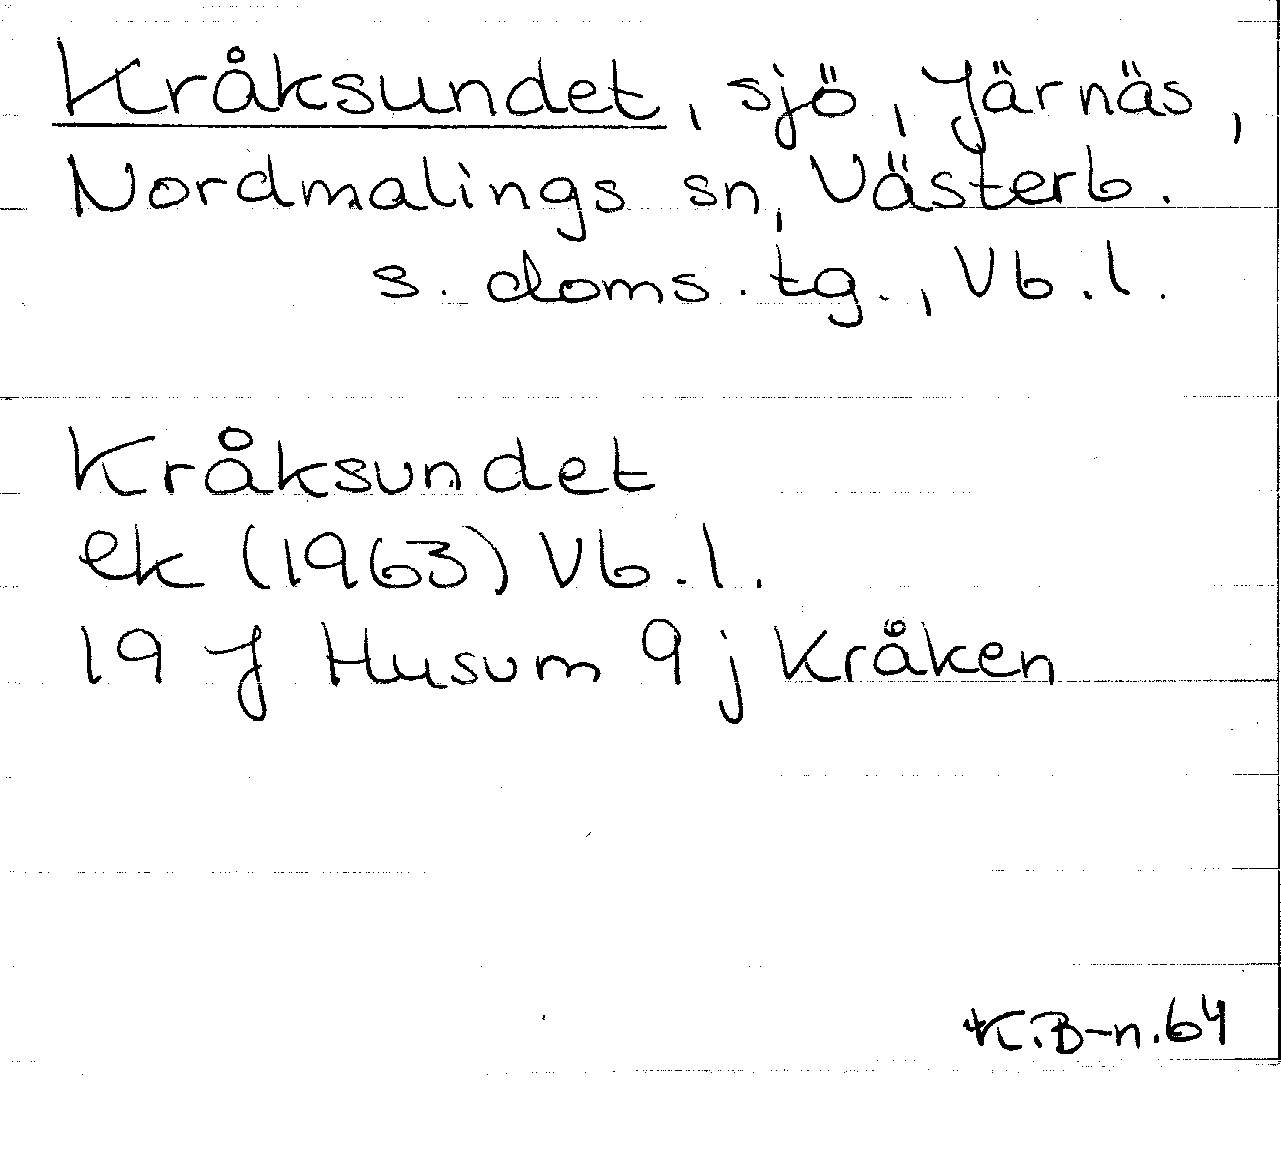 Kråksundet, sjö, Järnäs,
Nordmalings sn, Västerb.
s. doms. tg., Vb.l.
Kråksundet
ek (1963) Vb.l.
19 J Husum 9 j Kråken
K.B-n.64